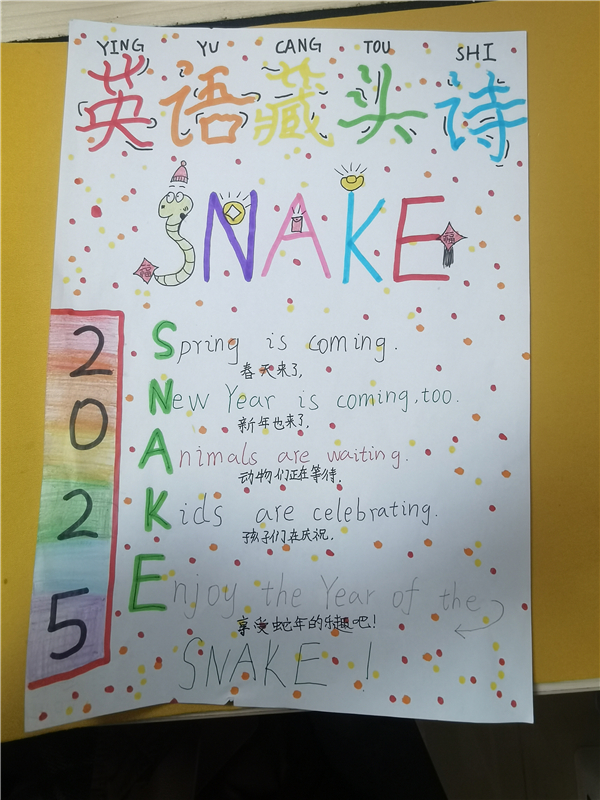 YING YU CANG TOU SHI
英语藏头诗
SNAKE
福
福
2025
Spring is coming.
春天来了,
New Year is coming,too.
新年也来了,
Animals are waiting.
动物们正在等待,
Kids are celebrating.
孩子们在庆祝,
Enjoy the Year of the
享受蛇年的乐趣吧!
SNAKE!